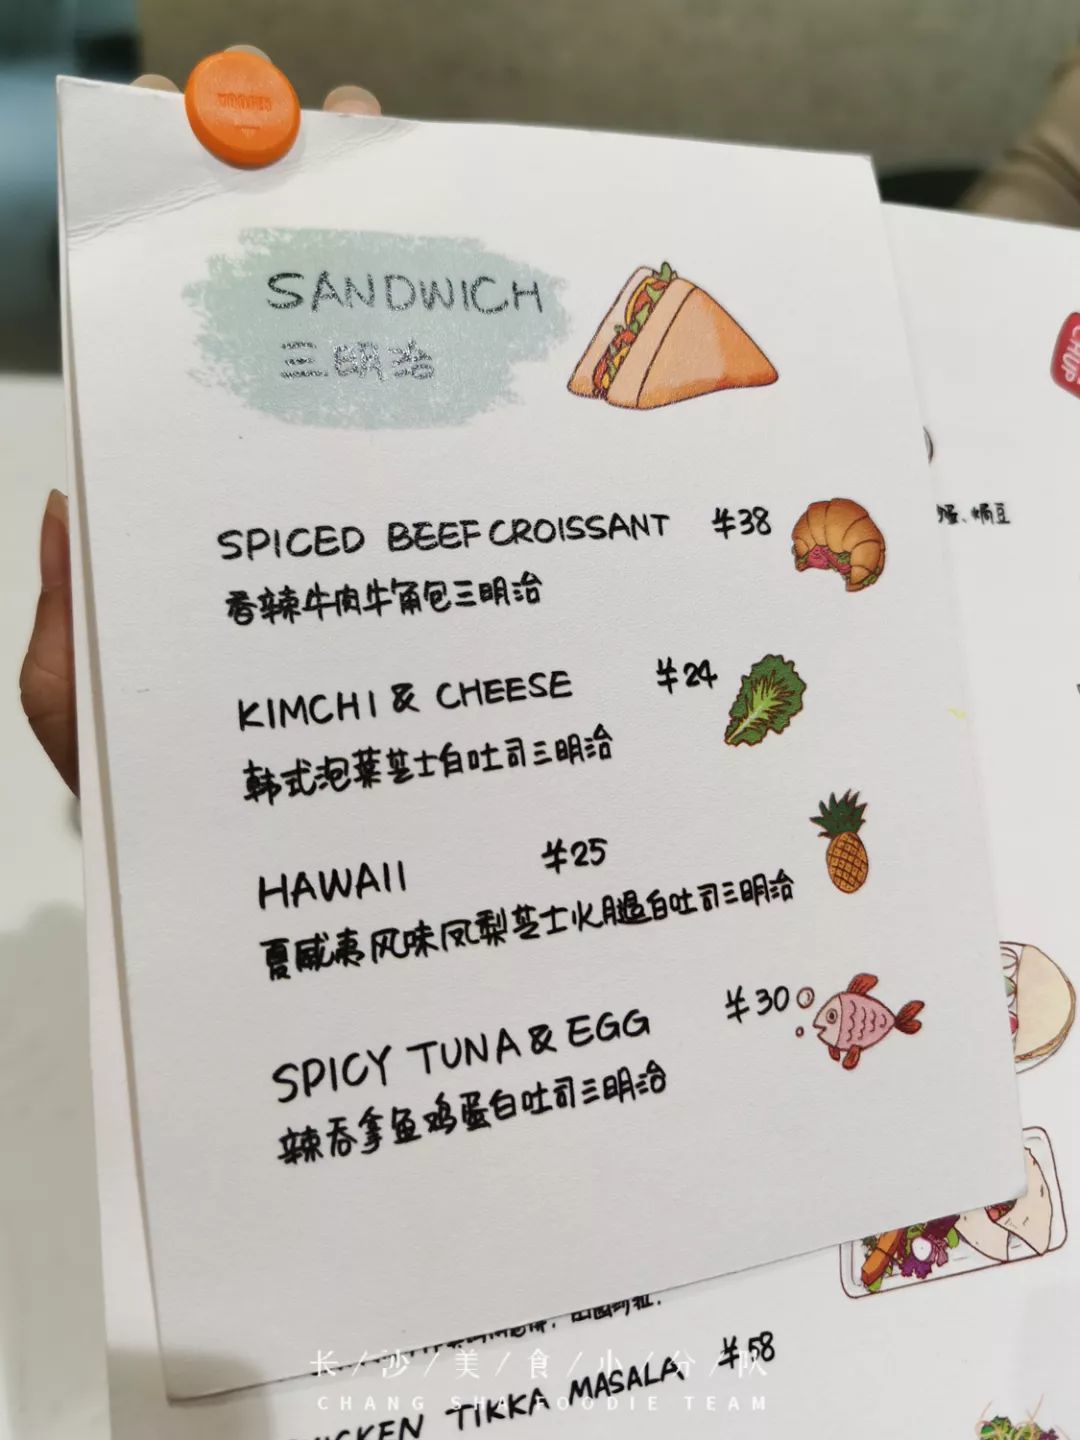 SANDWICH
三明治
SPICED BEEF CROISSANT ¥38
香辣牛肉牛角包三明治
KIMCHI & CHEESE ¥24
韩式泡菜芝士白吐司三明治
HAWAII ¥25
夏威夷风味凤梨芝士火腿白吐司三明治
SPICY TUNA & EGG ¥30
辣吞拿鱼鸡蛋白吐司三明治
CHUP
焗豆
¥58
TIKKA MASALA
长/沙/美/食/小/分/队
CHANG SHA FOODIE TEAM